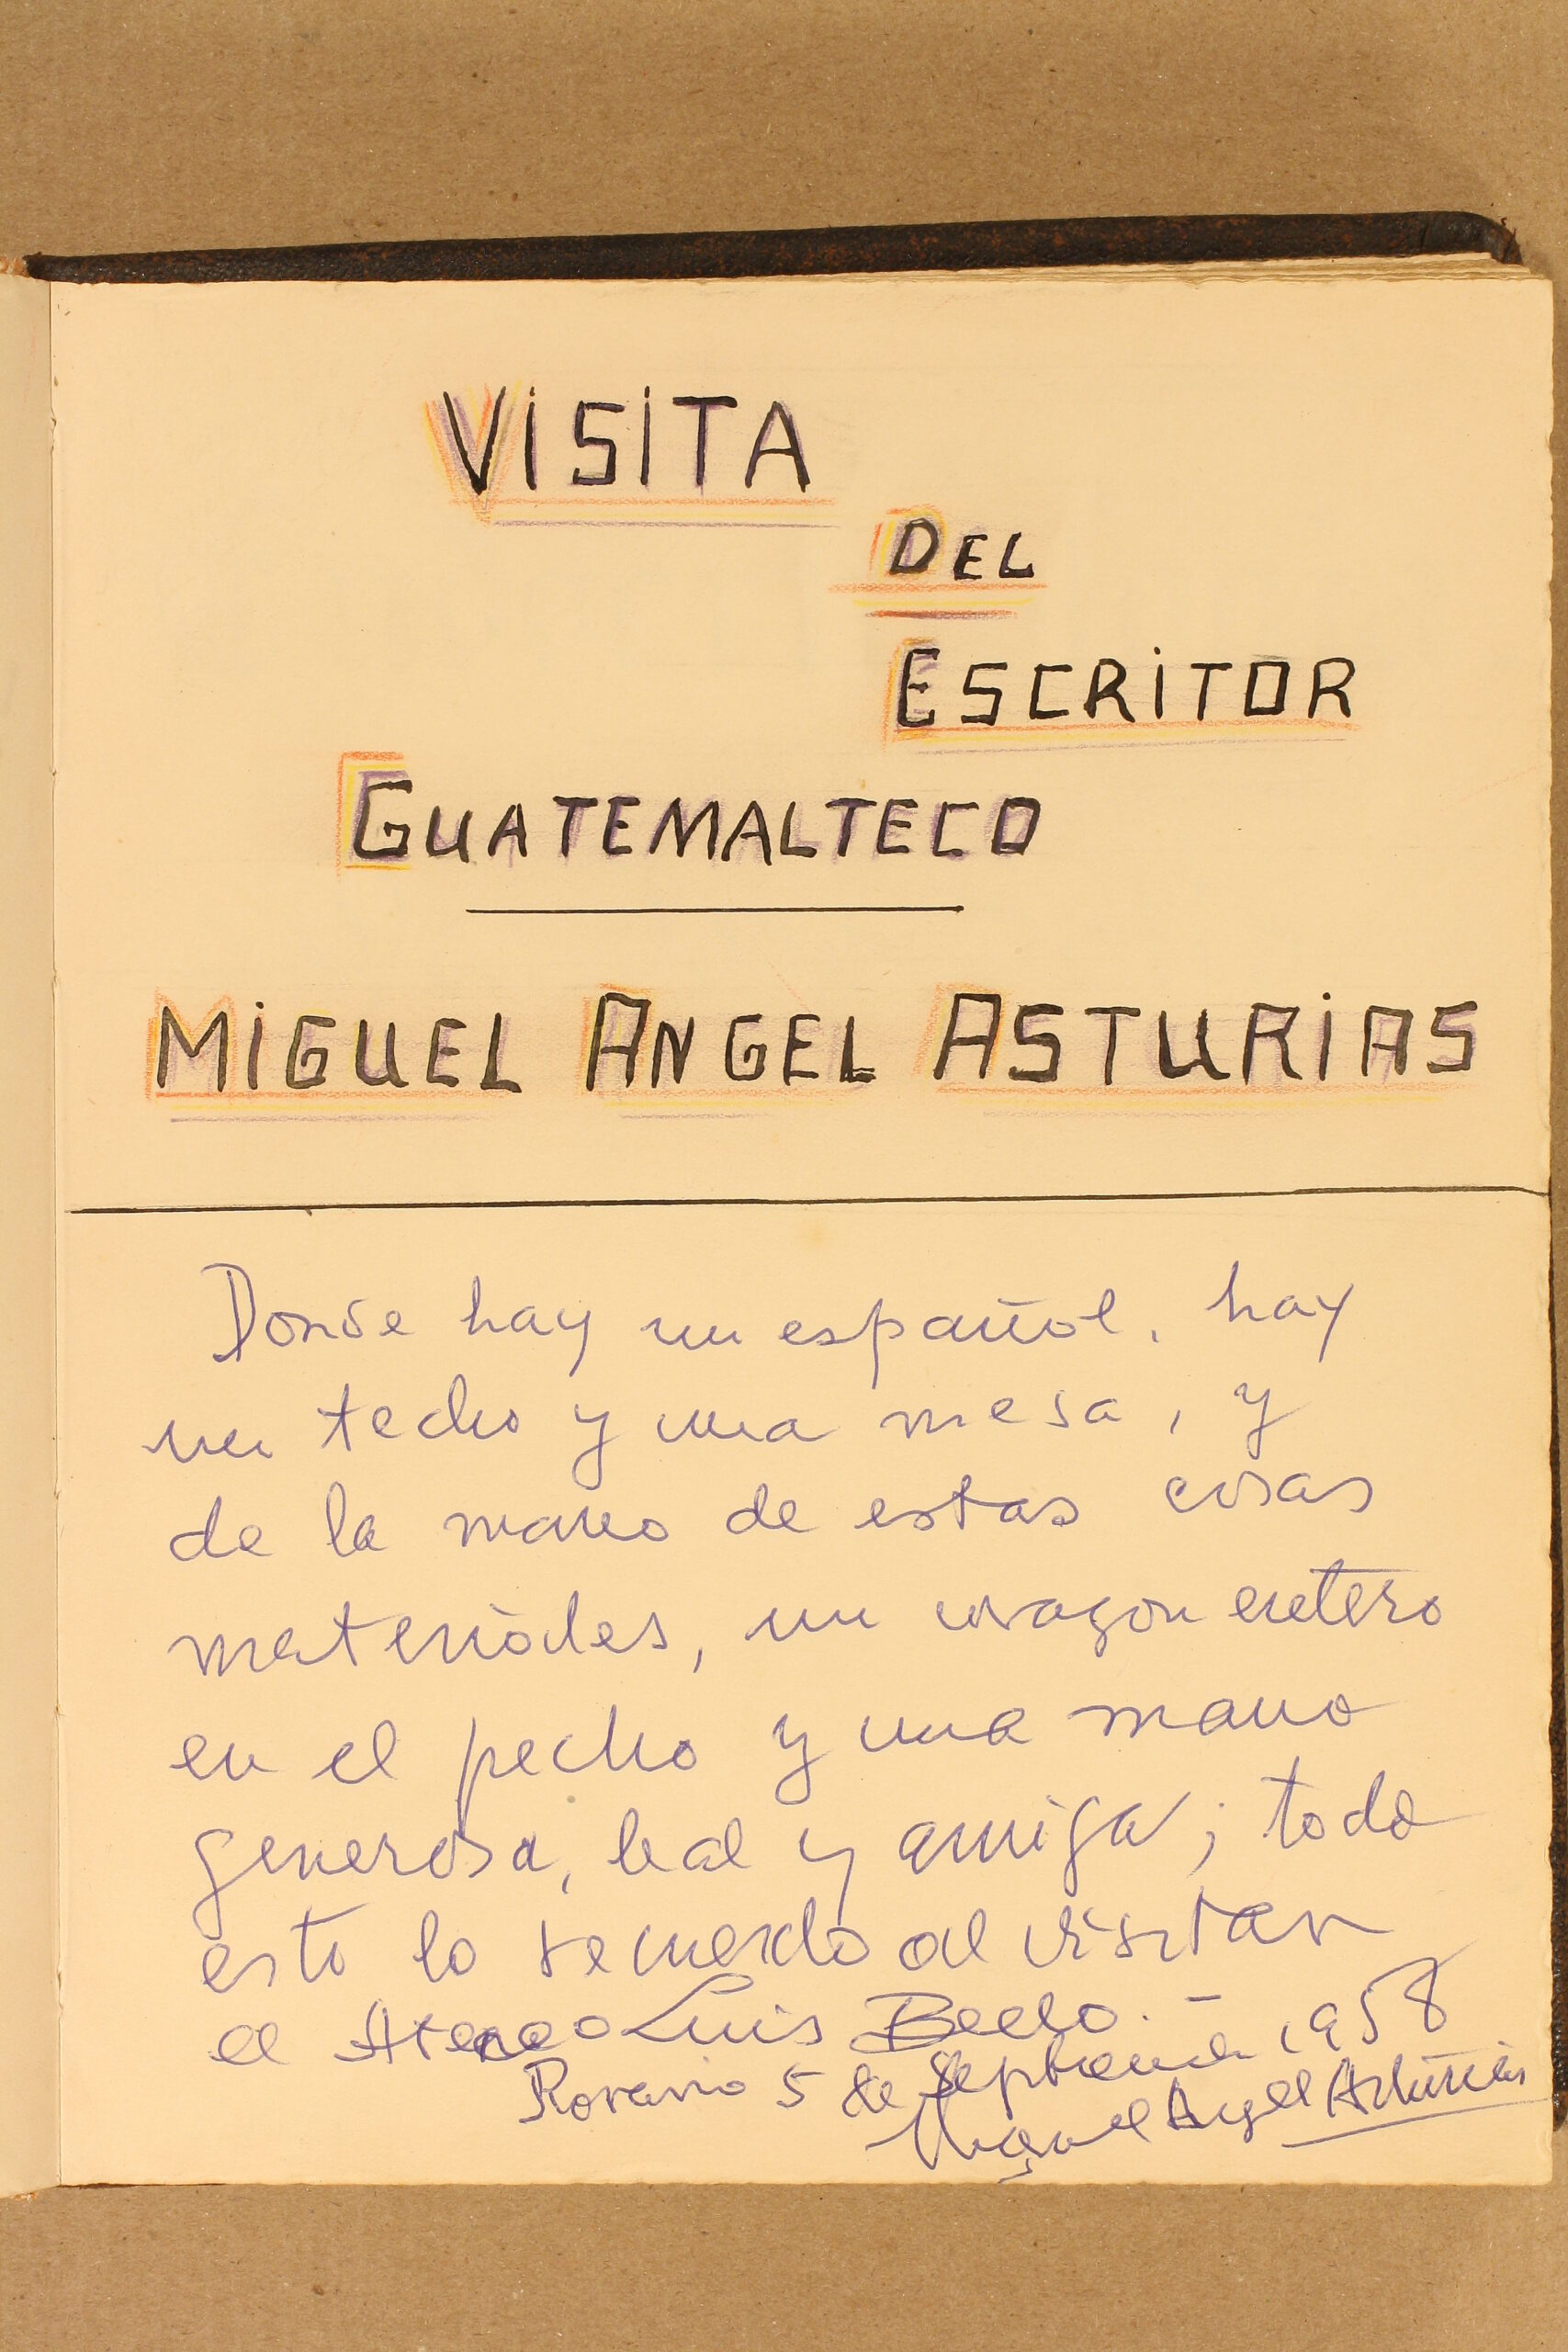 VISITA
DEL
ESCRITOR
GUATEMALTECO
MIGUEL ANGEL ASTURIAS
Donde hay un español, hay
un techo y una mesa, y
de la mano de estas cosas
materiales, un corazon entero
en el pecho y una mano
generosa, leal y amiga; todo
esto lo recuerdo al visitar
el Ateneo Luis Bello. -
Rosario 5 de septiembre 1958
Miguel Angel Asturias